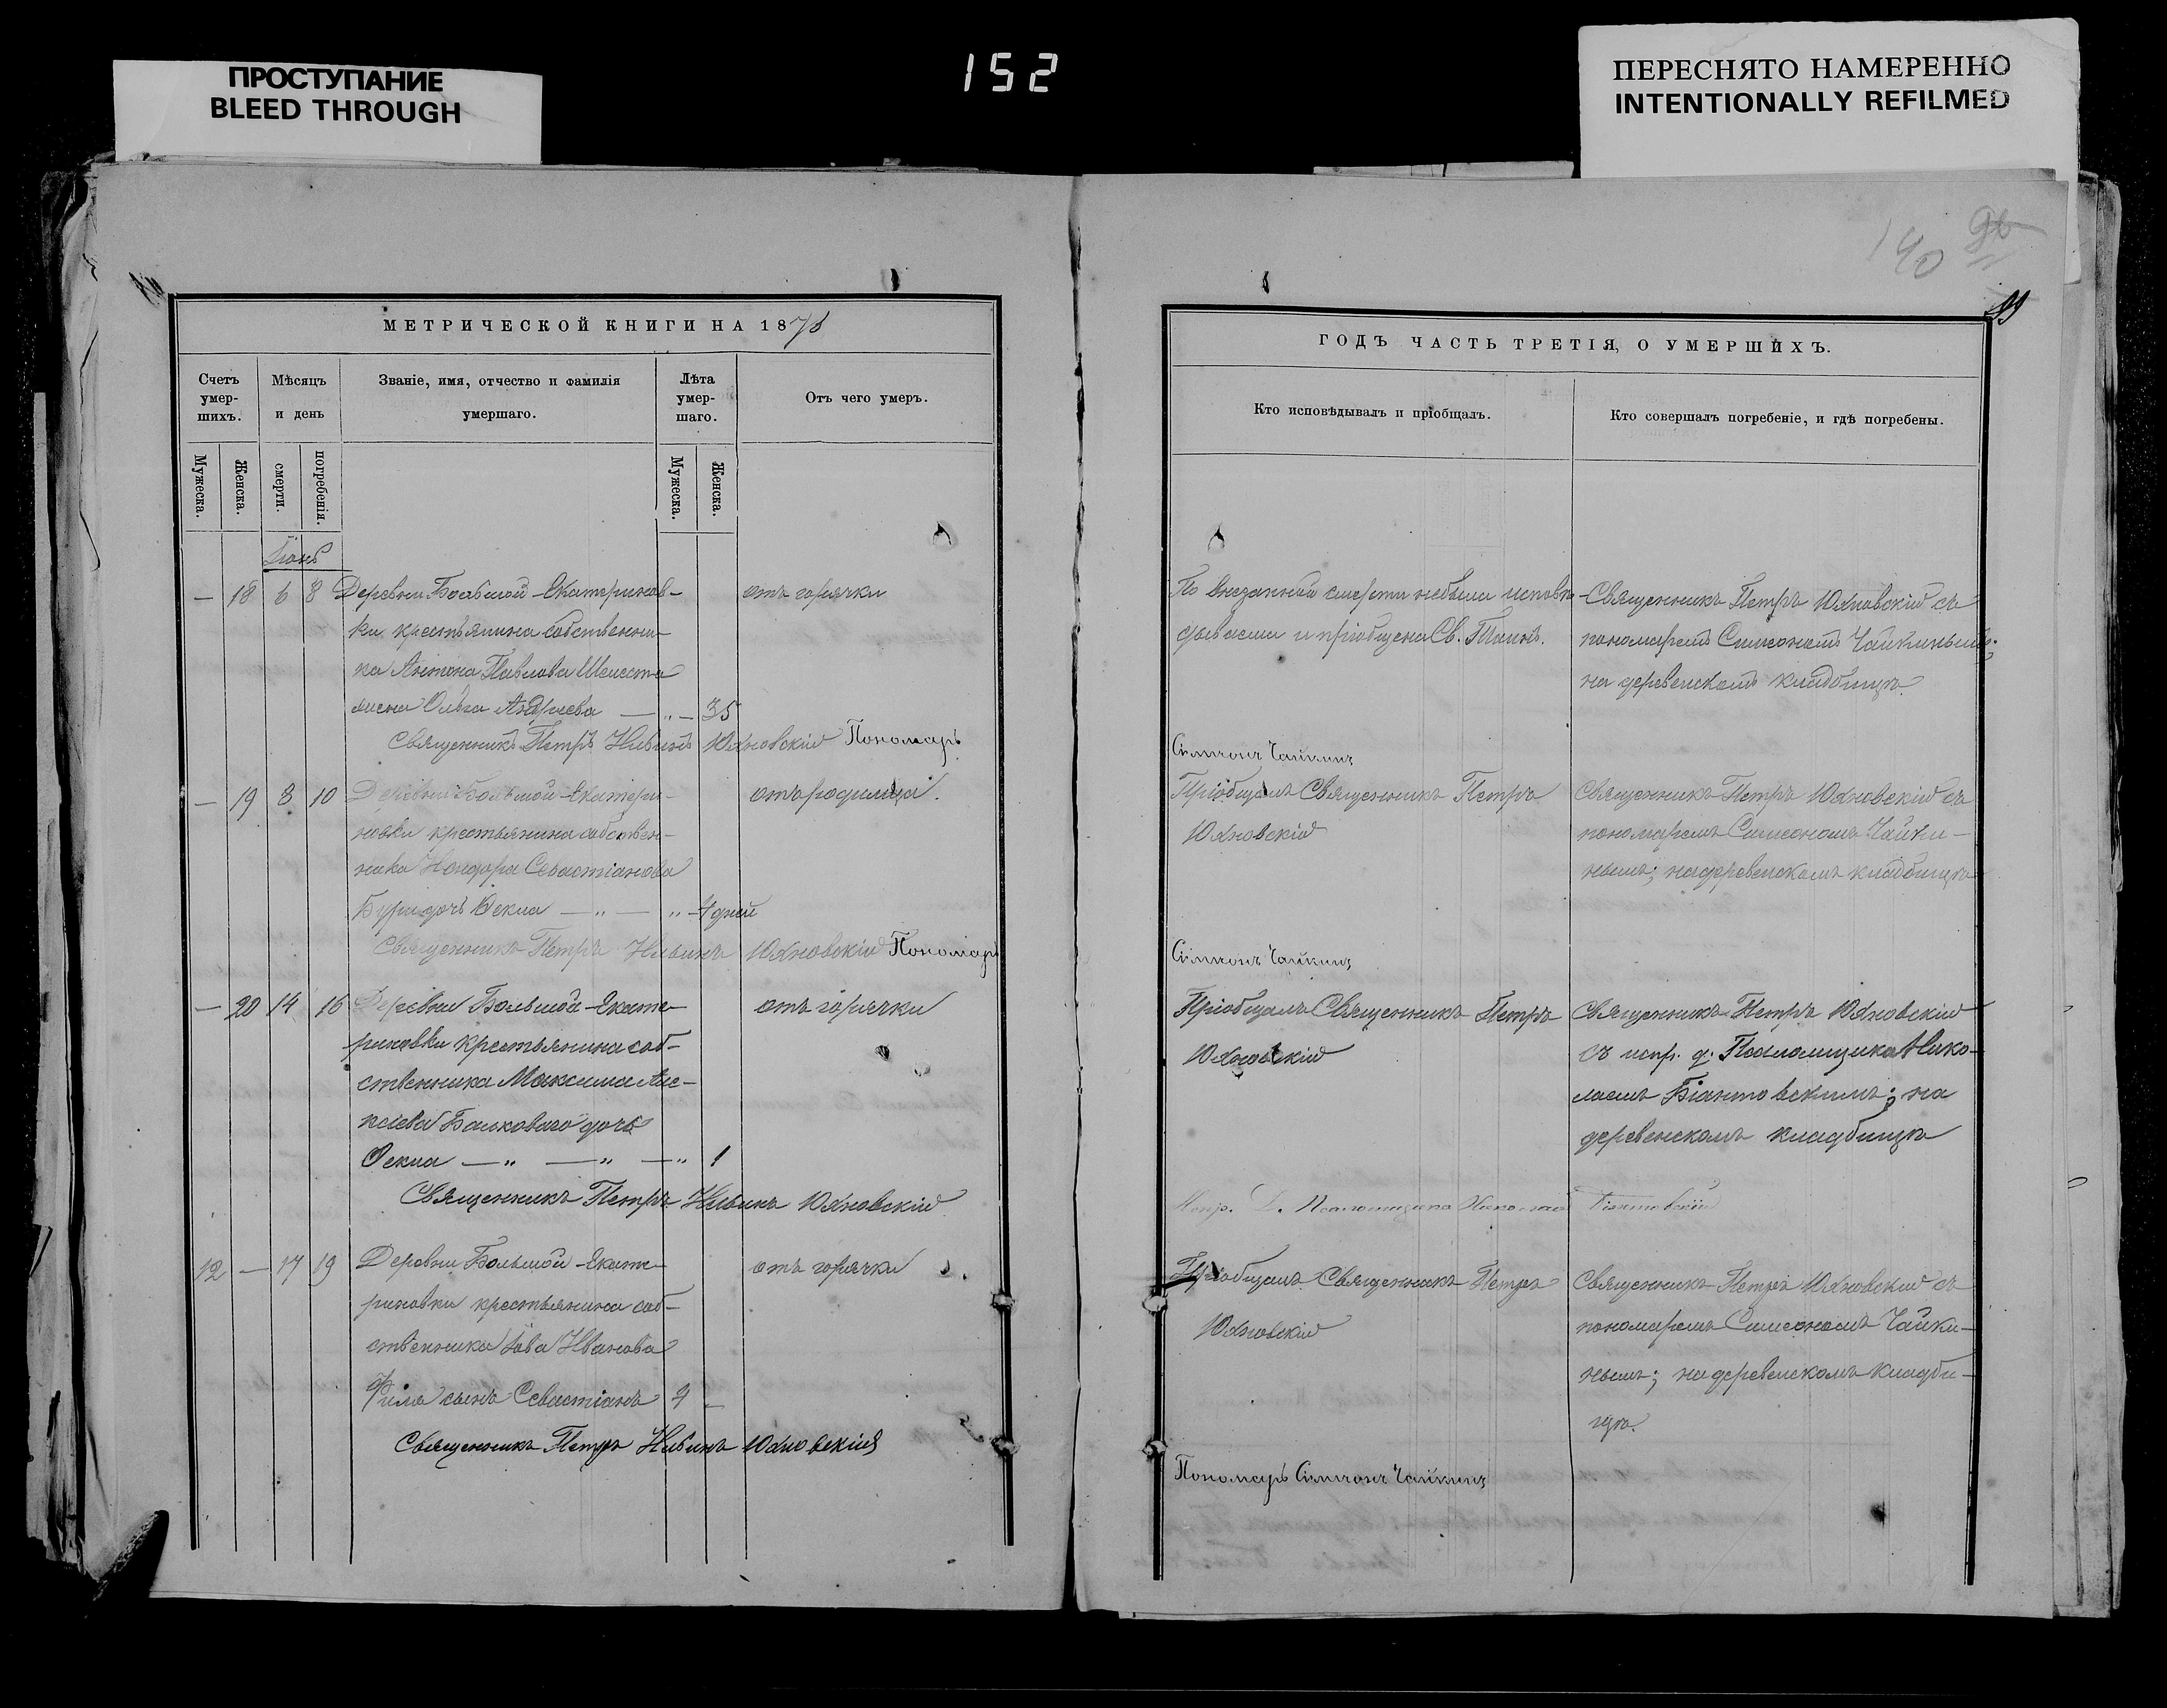 ПРОСТУПАНИЕ
BLEED THROUGH
152
ПЕРЕСНЯТО НАМЕРЕННО
INTENTIONALLY REFILMED
140
МЕТРИЧЕСКОЙ КНИГИ НА 187
Счетъ умер-шихъ.
Мѣсяцъ и день
Званіе, имя, отчество и фамилія умершаго.
Лѣта умер-шаго.
Отъ чего умеръ.
Мужеска.
Женска.
смерти.
погребенія.
Мужеска.
Женска.
Іюнь
— 18 6 8 Деревни Большой-Екатеринов- отъ горячки
ки крестьянина собственни-
ка Антона Павлова Шелеста
жена Ольга Андреева — „ — 35
Священникъ Петръ Нивинъ Юхновскій Пономарь
— 19 8 10 Деревни Большой-Екатери- отъ родимца.
новки крестьянина собствен-
ника Севастіанова
дочь Ѳекла — „ — „ 4 дней
Священникъ Петръ Нивинъ Юхновскій Пономарь
— 20 14 16 Деревни Большой-Екате- отъ горячки
риновки крестьянина соб-
ственника Максима Але-
ксѣева дочь
Ѳекла — „ — „ — „ 1
Священникъ Петръ Нивинъ Юхновскій
12 — 17 19 Деревни Большой-Екате- отъ горячки
риновки крестьянина соб-
ственника Іова Иванова
сынъ Севастіанъ
Священникъ Петръ Нивинъ Юхновскій
ГОДЪ ЧАСТЬ ТРЕТІЯ, О УМЕРШИХЪ.
Кто исповѣдывалъ и пріобщалъ.
Кто совершалъ погребеніе, и гдѣ погребены.
По внезапной смерти небыла исповѣ-
дываема и пріобщена Св. Таинъ.
Священникъ Петръ Юхновскій съ
пономаремъ Симеономъ Чайкинымъ;
на деревенскомъ кладбищѣ.
Сѵмеонъ Чайкинъ
Пріобщалъ Священникъ Петръ
Юхновскій
Священникъ Петръ Юхновскій съ
пономаремъ Симеономъ Чайки-
нымъ; на деревенскомъ кладбищѣ
Сѵмеонъ Чайкинъ
Пріобщалъ Священникъ Петръ
Юхновскій
Священникъ Петръ Юхновскій
съ испр. д. Псаломщика Нико-
лаемъ на
деревенскомъ кладбищѣ
Испр. д. Псаломщика Николай
Пріобщалъ Священникъ Петръ
Юхновскій
Священникъ Петръ Юхновскій съ
пономаремъ Симеономъ Чайки-
нымъ; на деревенскомъ кладби-
щѣ.
Пономарь Сѵмеонъ Чайкинъ